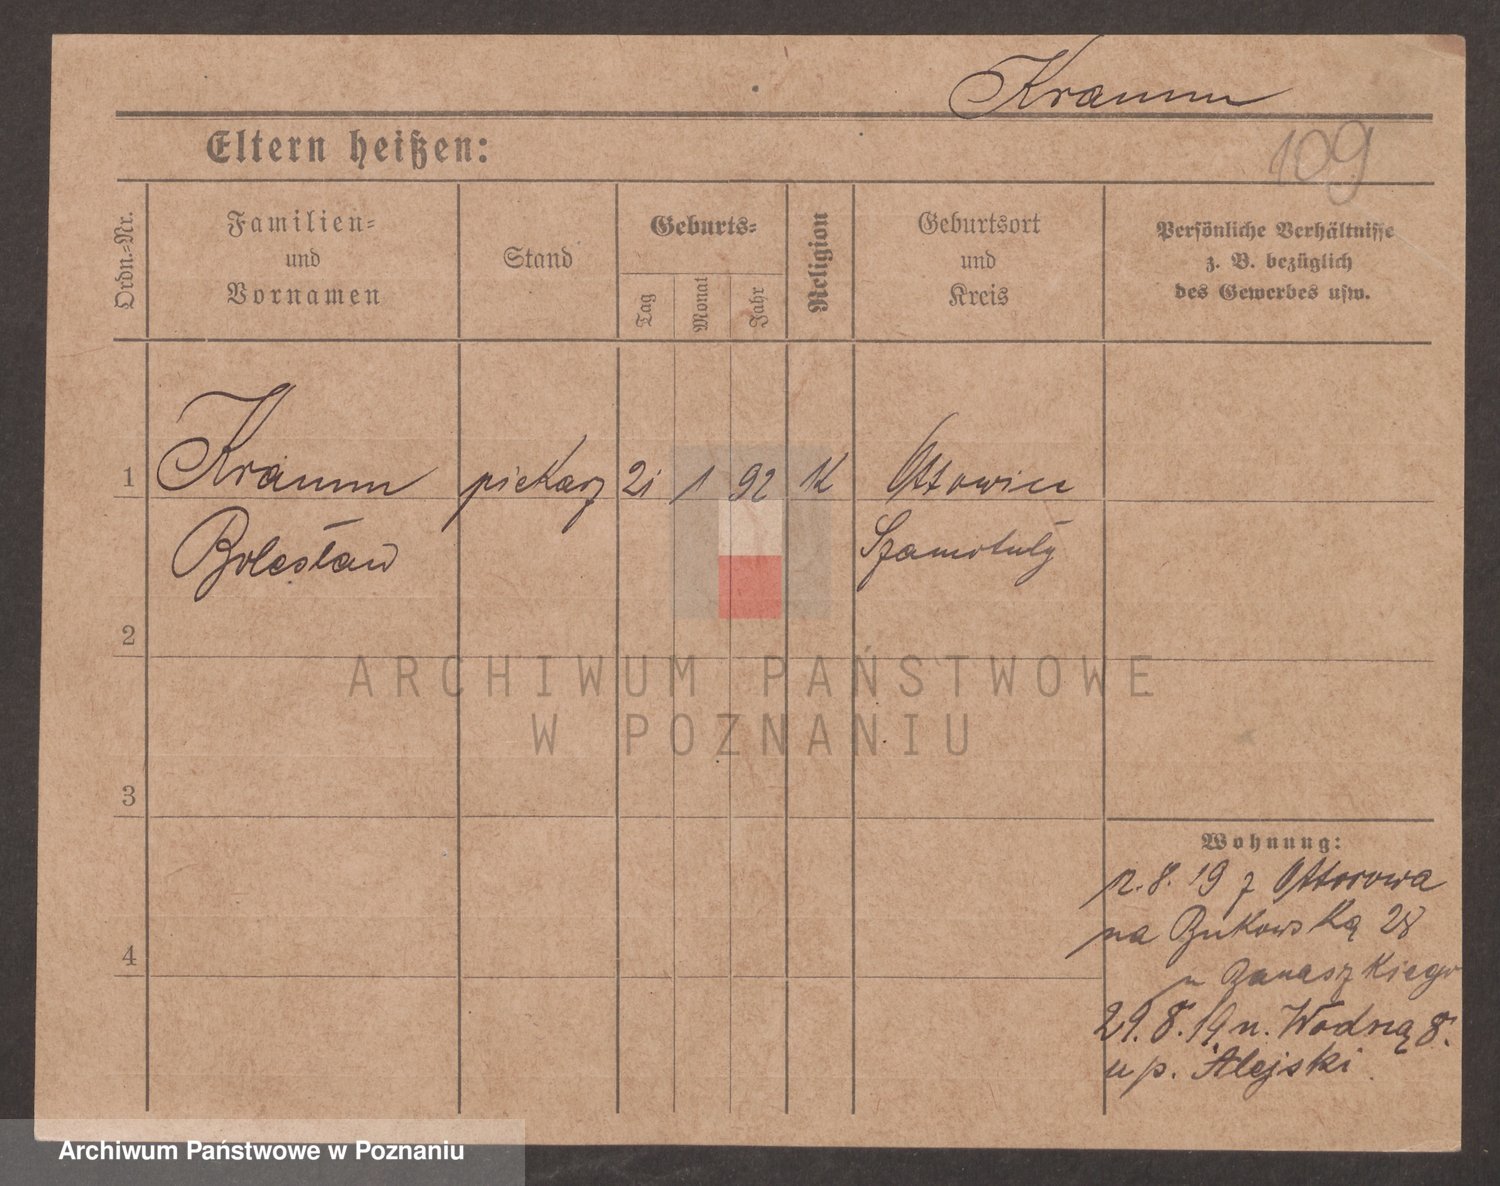 Kramm
109
Eltern heißen:
Ordn.-Nr.
Familien-
und
Vornamen
Stand
Geburts-
Tag
Monat
Jahr
Religion
Geburtsort
und
Kreis
Persönliche Verhältnisse
z. B. bezüglich
des Gewerbes usw.
1 Kramm piekarz 21 1 92 K
Bolesław Szamotuły
2
ARCHIWUM PAŃSTWOWE
W POZNANIU
3
Wohnung:
12.8.19 z Ottorowa
na Bukowską 28
u Banaszkiego
4
29.8.19 n. Wodną 8.
u p. Alejski
Archiwum Państwowe w Poznaniu